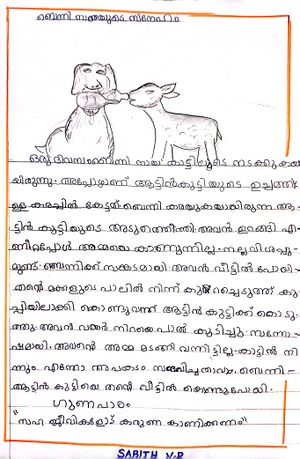 ബെന്നി നായയുടെ സ്നേഹം
ഒരു ദിവസം ബെന്നി നായ കാട്ടിലൂടെ നടക്കുകയാ
യിരുന്നു. അപ്പോഴാണ് ആട്ടിൻകുട്ടിയുടെ ഉച്ചത്തി
ലുള്ള കരച്ചിൽ കേട്ടത്. ബെന്നി കരയുകയായിരുന്ന ആ
ട്ടിൻ കുട്ടിയുടെ അടുത്തെത്തി. അവൻ ഉറങ്ങി എ
ണീറ്റപ്പോൾ അമ്മയെ കാണുന്നില്ല. നല്ല വിശപ്പു
മുണ്ട്. ബെന്നിക്ക് സങ്കടമായി അവൻ വീട്ടിൽ പോയി
തന്റെ മക്കളുടെ പാലിൽ നിന്ന് കുറച്ചെടുത്ത് കു
പ്പിയിലാക്കി കൊണ്ടുവന്ന് ആട്ടിൻ കുട്ടിക്ക് കൊടു
ത്തു. അവൻ വയർ നിറയെ പാൽ കുടിച്ചു. സന്തോ
ഷമായി. അവന്റെ അമ്മ മടങ്ങി വന്നിട്ടില്ല. കാട്ടിൽ നി
ന്നും എന്തോ അപകടം സംഭവിച്ചതാവും. ബെന്നി
ആട്ടിൻ കുട്ടിയെ തന്റെ വീട്ടിൽ കൊണ്ടുപോയി.
ഗുണപാഠം
"സഹ ജീവികളോട് കരുണ കാണിക്കണം"
SABITH V.P